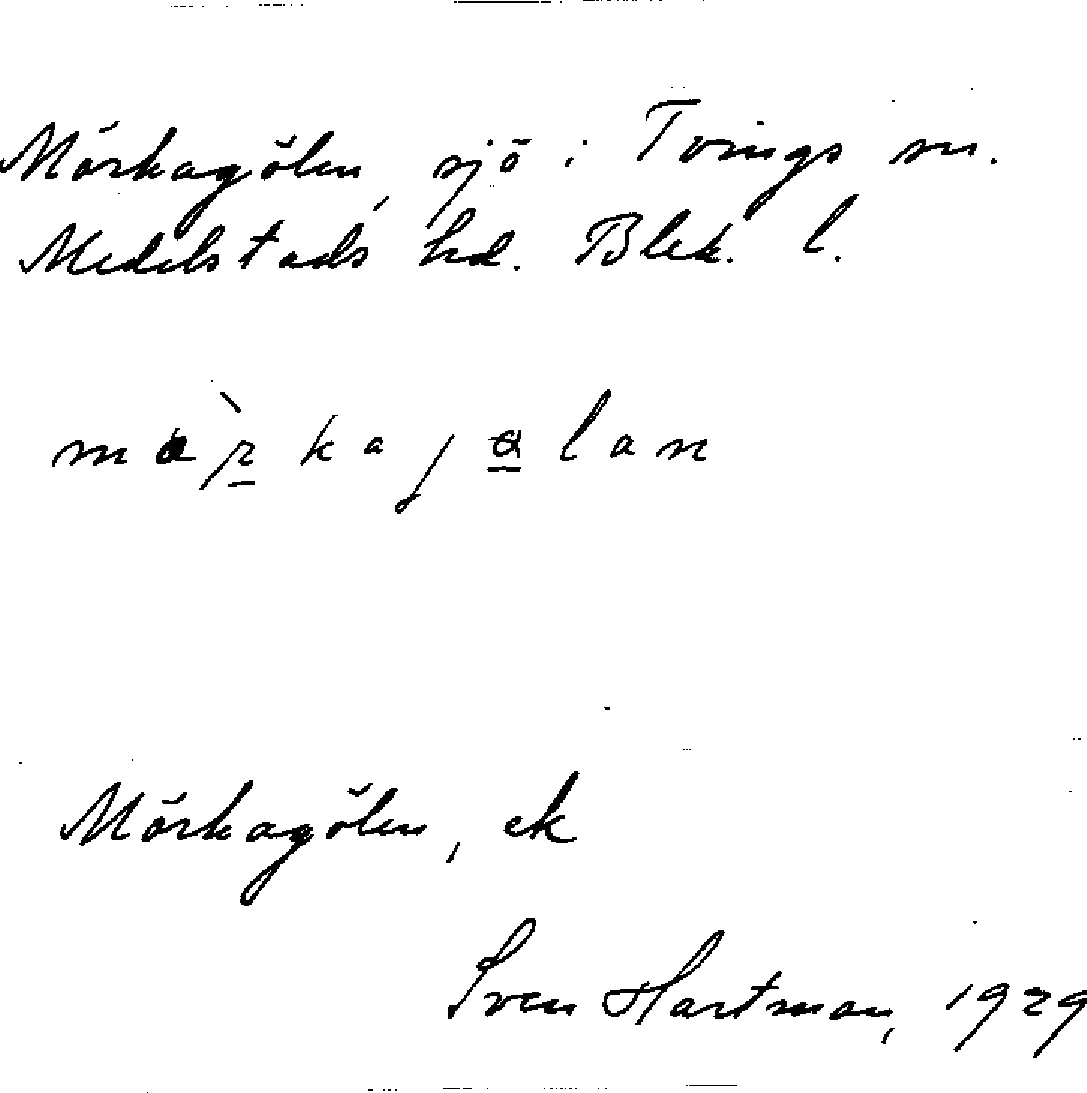 Mörkagölen, sjö i Tvings sn.
Medelstads hd. Blek. l.
Mörkagölen, ek
Sven Hartman, 1929